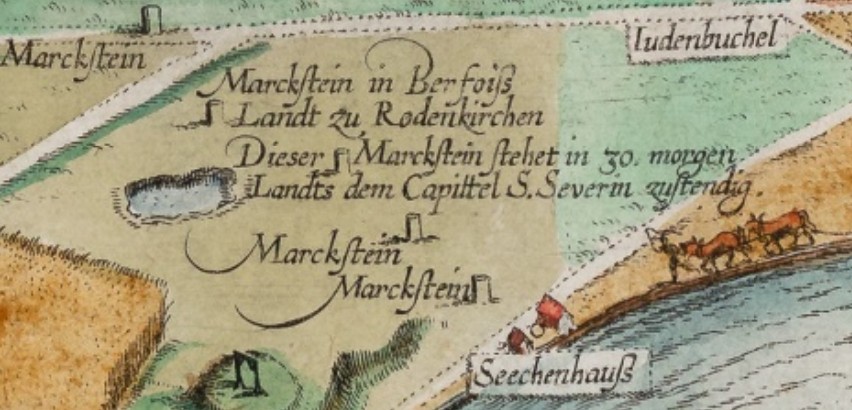 Marckstein
Iudenbuchel
Marckstein in Berfoiß
Landt zu Rodenkirchen
Dieser Marckstein stehet in 30. morgen
Landts dem Capittel S. Severin zustendig.
Marckstein
Marckstein
Seechenhauß